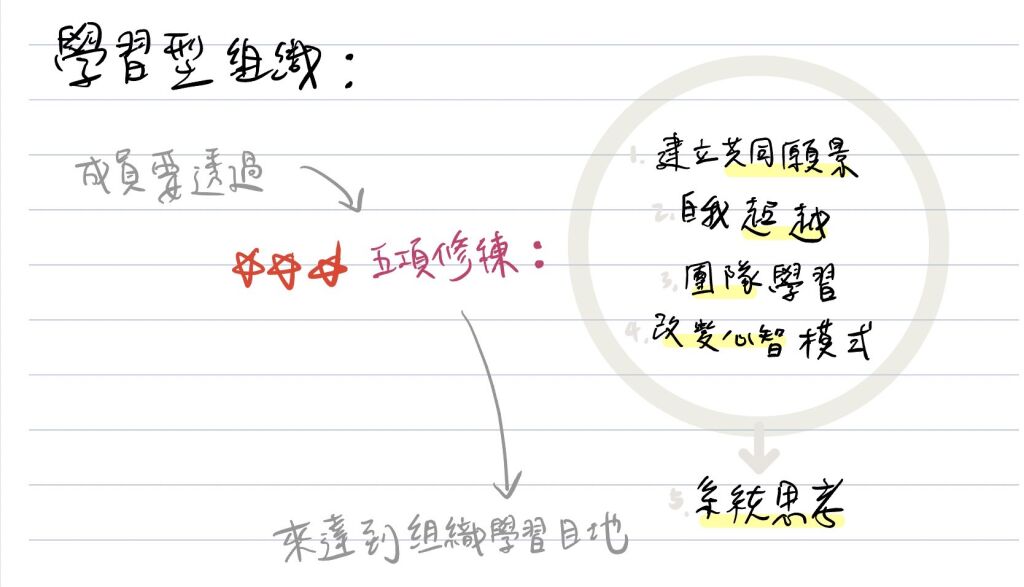 學習型組織：
成員要透過
五項修練：
來達到組織學習目地
1. 建立共同願景
2. 自我超越
3. 團隊學習
4. 改變心智模式
5. 系統思考